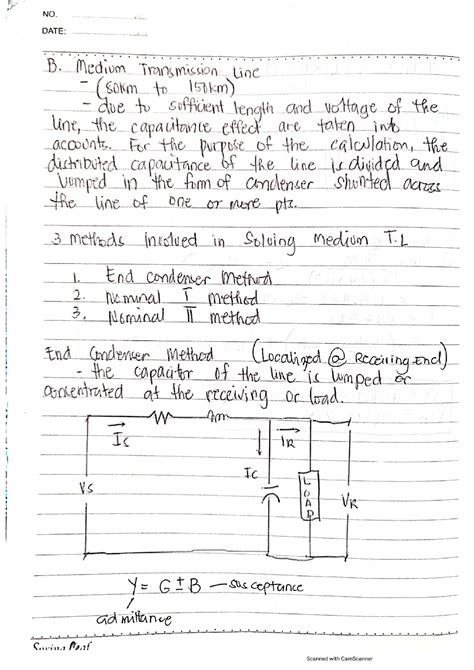 NO.
DATE:
B. Medium Transmission Line
- (80km to 150km)
- due to sufficient length and voltage of the
line, the capacitance effect are taken into
accounts. For the purpose of the calculation, the
distributed capacitance of the line is divided and
lumped in the form of condenser shunted across
the line of one or more pts.
3 methods involved in Solving Medium T.L
1. End condenser Method
2. Nominal T method
3. Nominal π method
End Condenser Method (Localized @ Receiving End)
- the capacitor of the line is lumped or
concentrated at the receiving or load.
Is
IR
Ic
VS
LOAD
VR
Y = G ± B — susceptance
admittance
Scanned with CamScanner